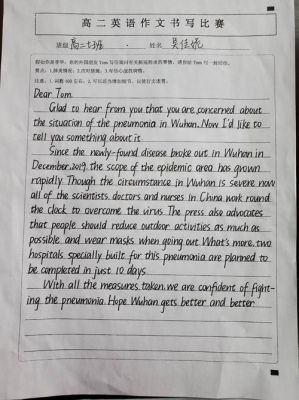 高二英语作文书写比赛
班级 高二七班 姓名 吴佳妮
Dear Tom,
Glad to hear from you that you are concerned about
the situation of the pneumonia in Wuhan. Now I'd like to
tell you something about it.
Since the newly-found disease broke out in Wuhan in
December, 2019, the scope of the epidemic area has grown
rapidly. Though the circumstance in Wuhan is severe now,
all of the scientists, doctors and nurses in China work round
the clock to overcome the virus. The press also advocates
that people should reduce outdoor activities as much as
possible and wear masks when going out. What's more, two
hospitals specially built for this pneumonia are planned to
be completed in just 10 days.
With all the measures taken, we are confident of fight-
ing the pneumonia. Hope Wuhan gets better and better